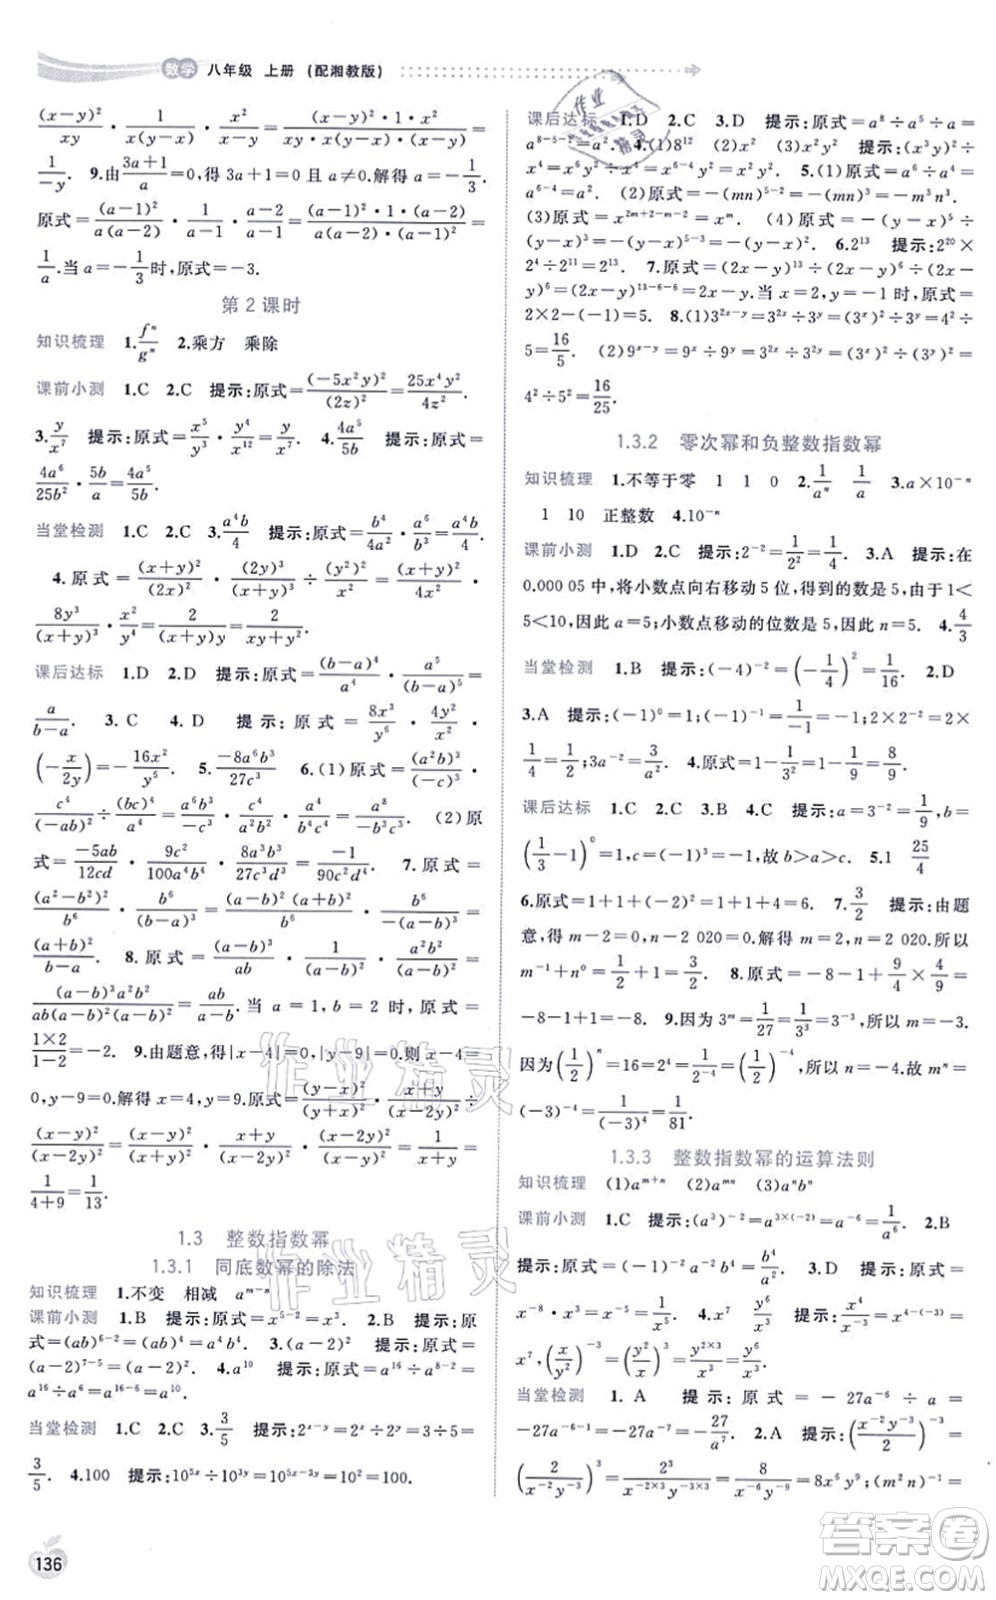 数学 八年级 上册 (配湘教版)
(x−y)²/xy · 1/x(y−x) · x²/x−y = (x−y)²·1·x²/xy·x(y−x)·(x−y) =
1/−y. 9.由3a+1/a=0,得 3a+1=0 且 a≠0.解得 a=−1/3.
原式=(a−1)²/a(a−2) · 1/a−1 · a−2/a−1 = (a−1)²·1·(a−2)/a(a−2)·(a−1)² =
1/a.当 a=−1/3时,原式=−3.
第 2 课时
知识梳理 1.fⁿ/gⁿ 2.乘方 乘除
课前小测 1.C 2.C 提示:原式=(−5x²y)²/(2z)²=25x⁴y²/4z².
3.y/x⁷ 提示:原式=x⁵/y³·y⁴/x¹². 4.4a⁵/5b 提示:原式=
4a⁶/25b²·5b/a=4a⁵/5b.
当堂检测 1.C 2.C 3.a⁴b/4 提示:原式=b⁴/4a²·a⁶/b³=a⁴b/4.
4.原式=(x+y)²/(2x)²·(2y)³/(x+y)³÷(y²)²/x²=(x+y)²/4x²·
8y³/(x+y)³·x²/y⁴=2/(x+y)y=2/xy+y².
课后达标 1.D 2.D 提示:原式=(b−a)⁴/a⁴·a⁵/(b−a)⁵=
a/b−a. 3.C 4.D 提示:原式=8x³/y⁶·4y²/x²·
(−x/2y)=−16x²/y⁵. 5.−8a⁶b³/27c³ 6.(1)原式=(a²b)³/(−c)³·
c⁴/(−ab)²÷(bc)⁴/a⁴=a⁶b³/−c³·c⁴/a²b²·a⁴/b⁴c⁴=a⁸/−b³c³. (2)原
式=−5ab/12cd·9c²/100a⁴b²·36a²b²/9c³d³=−1/90c²d⁴. 7.原式=
(a²−b²)²/b⁶·b⁶/(b−a)³=(a−b)²(a+b)²/b⁶·b⁶/−(a−b)³=
(a+b)²/b−a. 8.原式=(a−b)³/ab·1/(a−b)²·a²b²/(a−b)²=
(a−b)³a²b²/ab(a−b)²(a−b)².当 a=1,b=2 时,原式=
1×2/1−2=−2. 9.由题意,得|x−4|+|y−9|=0.则 x−4=
0,y−9=0.解得 x=4,y=9.原式=(y−x)²/(y+x)²·x+y/x−y÷
(x−y)²/x−y=(x−y)²/(x+y)²·x+y/x−y·x−y/(x−y)²=1/x+y=
1/4+9=1/13.
1.3 整数指数幂
1.3.1 同底数幂的除法
知识梳理 1.不变 相减 aᵐ⁻ⁿ
课前小测 1.B 提示:原式=x⁸⁻⁵=x³. 2.B 提示:原
式=(ab)⁶⁻²=(ab)⁴=a⁴b⁴. 3.(a−2)² 提示:原式=
(a−2)⁷⁻⁵=(a−2)². 4.a¹⁰ 提示:原式=a¹⁶÷a²⁺⁴=
a¹⁶÷a⁶=a¹⁶⁻⁶=a¹⁰.
当堂检测 1.C 2.C 3.3/5 提示:2ˣ⁻ʸ=2ˣ÷2ʸ=3÷5=
3/5. 4.100 提示:10⁵ˣ÷10³ʸ=10⁵ˣ⁻³ʸ=10²=100.
136
课后达标 1.D 2.C 3.D 提示:原式=a⁸÷a⁵÷a²=
a⁸⁻⁵⁻²=a. 4.(1)8¹² (2)x²y² 提示:原式=(x³y)²÷
x⁴=x⁶y²÷x⁴=x⁶⁻⁴y²=x²y². 5.(1)原式=a⁶÷a⁴=
a⁶⁻⁴=a². (2)原式=−(mn)⁵⁻²=−(mn)³=−m³n³.
(3)原式=x²ᵐ⁺²⁻ᵐ⁻²=xᵐ. (4)原式=−(x−y)⁵÷
(x−y)³=−(x−y)⁵⁻³=−(x−y)². 6.2¹³ 提示:2²⁰×
2⁴÷2¹¹=2¹³. 7.原式=(2x−y)¹³÷(2x−y)⁶÷(2x−
y)⁶=(2x−y)¹³⁻⁶⁻⁶=2x−y.当 x=2,y=−1 时,原式=
2×2−(−1)=5. 8.(1)3²ˣ⁻ʸ=3²ˣ÷3ʸ=(3ˣ)²÷3ʸ=4²÷
5=16/5. (2)9ˣ⁻ʸ=9ˣ÷9ʸ=3²ˣ÷3²ʸ=(3ˣ)²÷(3ʸ)²=
4²÷5²=16/25.
1.3.2 零次幂和负整数指数幂
知识梳理 1.不等于零 1 1 0 2.1/aⁿ 1/a 3.a×10⁻ⁿ
1 10 正整数 4.10⁻ⁿ
课前小测 1.D 2.C 提示:2⁻²=1/2²=1/4. 3.A 提示:在
0.000 05 中,将小数点向右移动 5 位,得到的数是 5,由于 1<
5<10,因此 a=5;小数点移动的位数是 5,因此 n=5. 4.4/3
当堂检测 1.B 提示:(−4)⁻²=(−1/4)²=1/16. 2.D
3.A 提示:(−1)⁰=1;(−1)⁻¹=1/−1=−1;2×2⁻²=2×
1/4=1/2;3a⁻²=3/a². 4.原式=1−1/3²=1−1/9=8/9.
课后达标 1.C 2.C 3.B 4.C 提示:a=3⁻²=1/9,b=
(1/3−1)⁰=1,c=(−1)³=−1,故 b>a>c. 5.1 25/4
6.原式=1+1+(−2)²=1+1+4=6. 7.3/2 提示:由题
意,得 m−2=0,n−2 020=0.解得 m=2,n=2 020.所以
m⁻¹+n⁰=1/2+1=3/2. 8.原式=−2³−1+9/4×4/9=
−8−1+1=−8. 9.因为 3ᵐ=1/27=1/3³=3⁻³,所以 m=−3.
因为(1/2)ⁿ=16=2⁴=1/2⁻⁴=(1/2)⁻⁴,所以 n=−4.所以 mⁿ=
(−3)⁻⁴=1/(−3)⁴=1/81.
1.3.3 整数指数幂的运算法则
知识梳理 (1)aᵐ⁺ⁿ (2)aᵐⁿ (3)aⁿbⁿ
课前小测 1.C 提示:(a³)⁻²=a³ˣ⁽⁻²⁾=a⁻⁶=1/a⁶. 2.B
提示:原式=(−1)⁻²a⁻⁶b⁴=b⁴/a⁶. 3.1/x³ 提示:原式=
x⁻⁸·x⁵=x⁻³=1/x³. 4.x⁷ y⁶/x³ 提示:原式=x⁴/x⁻³=x⁴⁻⁽⁻³⁾=
x⁷,原式=(x/y²)⁻³=(y²/x)³=y²ˣ³/x³=y⁶/x³.
当堂检测 1.A 提示:原式=−27a⁻⁶÷a=
−27a⁻⁶⁻¹=−27a⁻⁷=−27/a⁷. 2.A 提示:原式=(x⁻²y⁻³/2)⁻³=
(2/x⁻²y⁻³)³=2³/x⁻²ˣ³y⁻³ˣ³=8/x⁻⁶y⁻⁹=8x⁶y⁹;(m²n)⁻¹=
作业精灵
作业精灵
作业精灵
答案圈
MXQE.COM